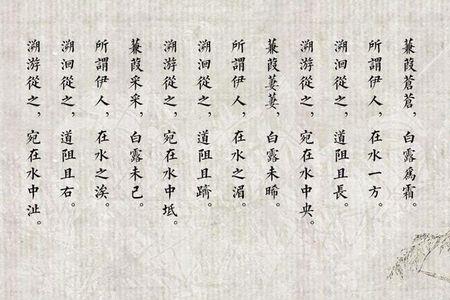 蒹葭蒼蒼，白露爲霜。
所謂伊人，在水一方。
溯洄從之，道阻且長。
溯游從之，宛在水中央。
蒹葭萋萋，白露未晞。
所謂伊人，在水之湄。
溯洄從之，道阻且躋。
溯游從之，宛在水中坻。
蒹葭采采，白露未已。
所謂伊人，在水之涘。
溯洄從之，道阻且右。
溯游從之，宛在水中沚。